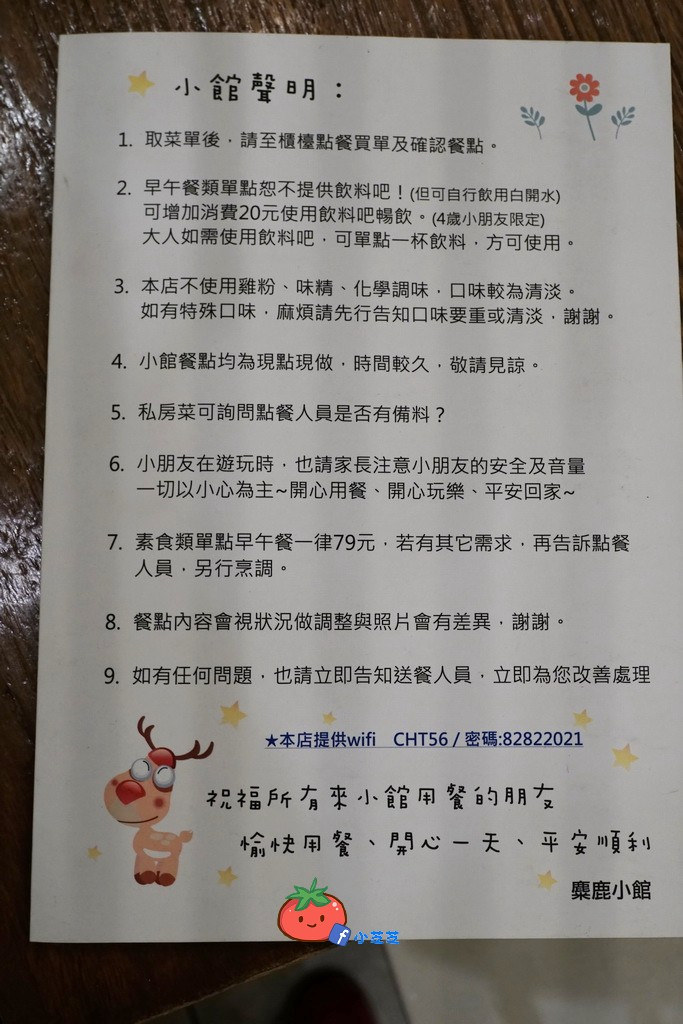 小館聲明：
1. 取菜單後，請至櫃檯點餐買單及確認餐點。
2. 早午餐類單點恕不提供飲料吧！(但可自行飲用白開水)
可增加消費20元使用飲料吧暢飲。(4歲小朋友限定)
大人如需使用飲料吧，可單點一杯飲料，方可使用。
3. 本店不使用雞粉、味精、化學調味，口味較為清淡。
如有特殊口味，麻煩請先行告知口味要重或清淡，謝謝。
4. 小館餐點均為現點現做，時間較久，敬請見諒。
5. 私房菜可詢問點餐人員是否有備料？
6. 小朋友在遊玩時，也請家長注意小朋友的安全及音量
一切以小心為主~開心用餐、開心玩樂、平安回家~
7. 素食類單點早午餐一律79元，若有其它需求，再告訴點餐
人員，另行烹調。
8. 餐點內容會視狀況做調整與照片會有差異，謝謝。
9. 如有任何問題，也請立即告知送餐人員，立即為您改善處理
★本店提供wifi CHT56 / 密碼:82822021
祝福所有來小館用餐的朋友
愉快用餐、開心一天、平安順利
麋鹿小館
f 小茎茎